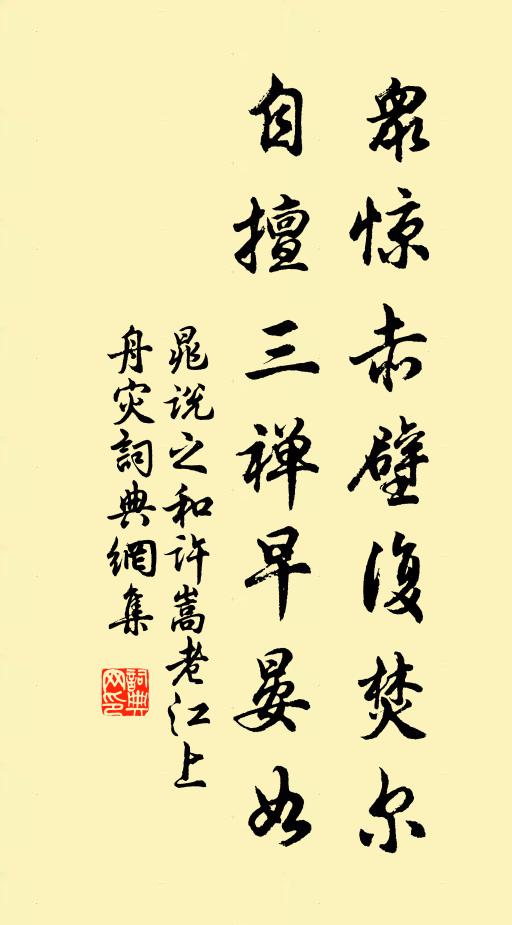 眾惊赤壁復焚尔
自擅三禅早晏如
晁说之和许嵩老江上
舟灾詞典網集
詞典
网印